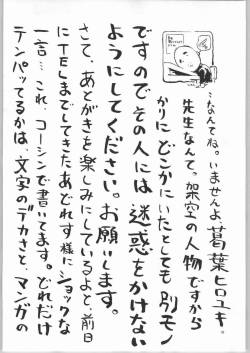 …なんてね。いませんよ、葛葉ヒロユキ。
先生なんて。架空の人物ですから
かりにどこかにいたとしても別モン
ですのでその人には迷惑をかけない
ようにしてください。お願いします。
さて、あとがきを楽しみにしているよと、前日
にTELまでしてきたあどれす様にショックな
一言…これ、コーシンで書いてます。どれだけ
テンパッてるかは、文字のデカさと、マンガの